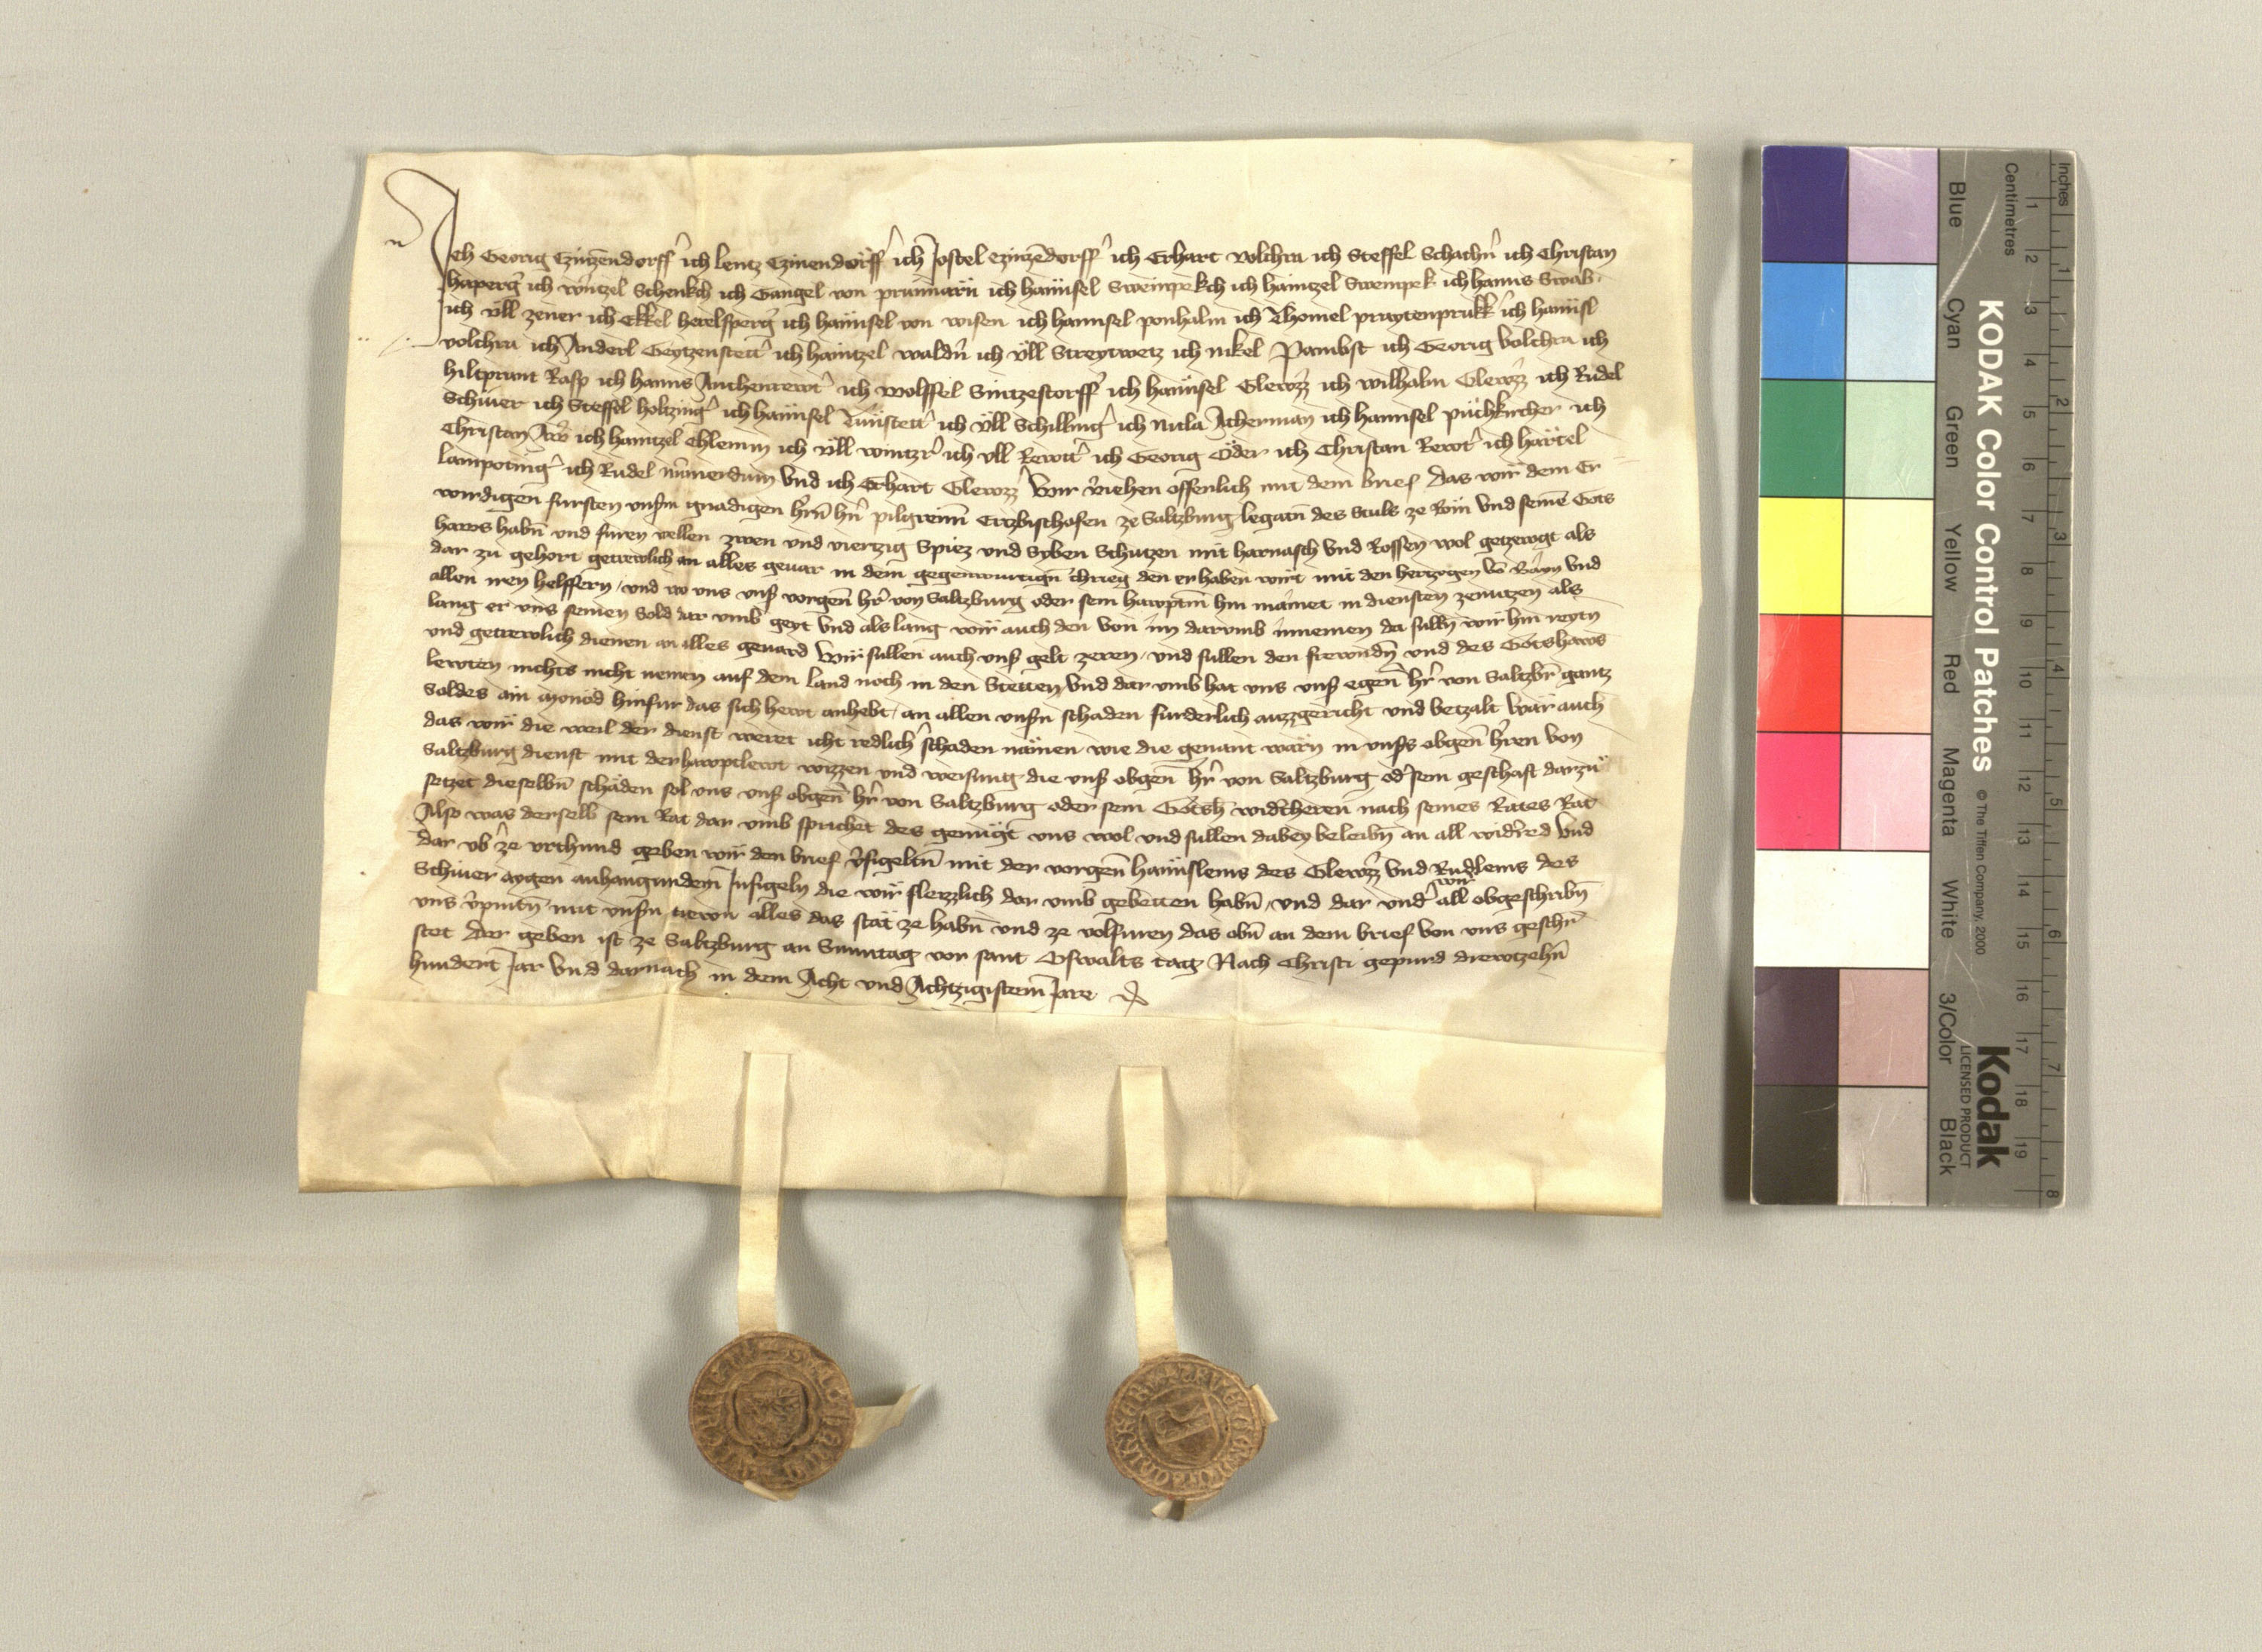 Ich Georig Czinczendorff ich lentz Czinendorff ich Jostel czinczendorff ich Erhart volchra ich Steffel Schachn ich Christan
haperg ich wentzel Schenkch ich Gangel von prunnarn ich hannsel Sweinpekch ich haintzel Swempek ich hanns Swab
ich Ull zener ich Ekkel herelsperg ich hannsel von wisen ich hannsel ponhalm ich Thomel praytenprukk ich hannsl
volchra ich Anderl Geytzenstett ich haintzel waldn ich Ull Streytwetz ich nikel Pambst ich Georig volchra ich
hiltprant Rasp ich hanns Anthenrewt ich wolffel Sintzestorff ich hannsel Glewzz ich wilhalm Glewzz ich Rudel
Schiuer ich Steffel holtzing ich hannsel ich Ull Schilling ich nicla Acherman ich hannsel puchkircher ich
Christan ich haintzel Chlemm ich Ull wintzr ich Ull Rewtt ich Georig Oder ich Christan Rewt ich hartel
lampoting ich Rudel und ich Erhart Glewzz wir veriehen offenlich mit dem brief das wir dem Er
wirdigen fursten unserm gnadigen hern hern pilgreim Ertzbischofen ze Saltzburg legatn des Stuls ze Rom und seinem Gots
haws habn und furen wellen zwen und viertzig Spiez und Syben Schutzen mit harnasch und Rossen wol getzewgt als
dar zu gehort getrewlich an alles geuar in dem gegenwurtign chrieg den er haben wirt mit den hertzogen von Bairn und
allen iren helffern und wo uns unser vorgen her von Saltzburg oder sein hawptm hin maınet in diensten ze nutzen als
lang er uns seinen Sold dar umb geyt und als lang wir auch den von im darumb innemen da sulln wir hin reytn
und getrewlich dienen an alles geuard wir sullen auch unser gelt zeren und sullen den frewndn und des Gotshaws
lewten nichts nicht nemen auf dem land noch in den Stetten und dar umb hat uns unser egen her von Saltzbr gantz
Soldes ain Monod hinfur das sich hewt anhebt an allen unsern schaden furderlich auzzgericht und betzalt war auch
das wir die weil der dienst weret icht redlich schaden namen wie die genant warn in unsers obgen hern von
Saltzburg dienst mit der hawptlewt wizzen und weisung die unser obgen her von Saltzburg oder sein geschaft darzu
setzet dieselbn schaden sol uns unser obgen her von Saltzburg oder sein Gotsh widercheren nach seines Rates Rat
Also was derselb sein Rat dar umb sprichet des genugt uns wol und sullen dabey beleibn an all widerred und
dar ub ze urchund geben wir den brief versigeltn mit der vorgen hannsleins des Glewzz und Rudleins des
Schiuer aygen anhangundem Insigeln die wir fleizzlich dar umb gebetten habn und dar und wir all obgeschribn
uns verpintn mit unsern trewn alles das stat ze habn und ze volfuren das obn an dem brief von uns geschr
stet Der geben ist ze Saltzburg an Sunntag vor sant Oswalts tag Nach Christi gepurd drewtzehn
hundert Jar und darnach in dem Acht und Achtzigistem Jare
KODAK Color Control Patches
© The Tiffen Company, 2000
Kodak
LICENSED PRODUCT
Blue Cyan Green Yellow Red Magenta White 3/Color Black
Inches 1 2 3 4 5 6 7 8
Centimetres 1 2 3 4 5 6 7 8 9 10 11 12 13 14 15 16 17 18 19